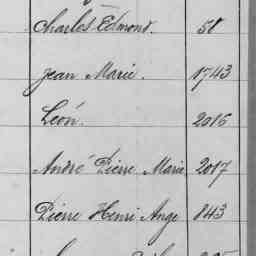 Charles Edmond. 58
Jean Marie. 1743
Léon. 2016
André Pierre Marie 2017
Pierre Henri Ange 843